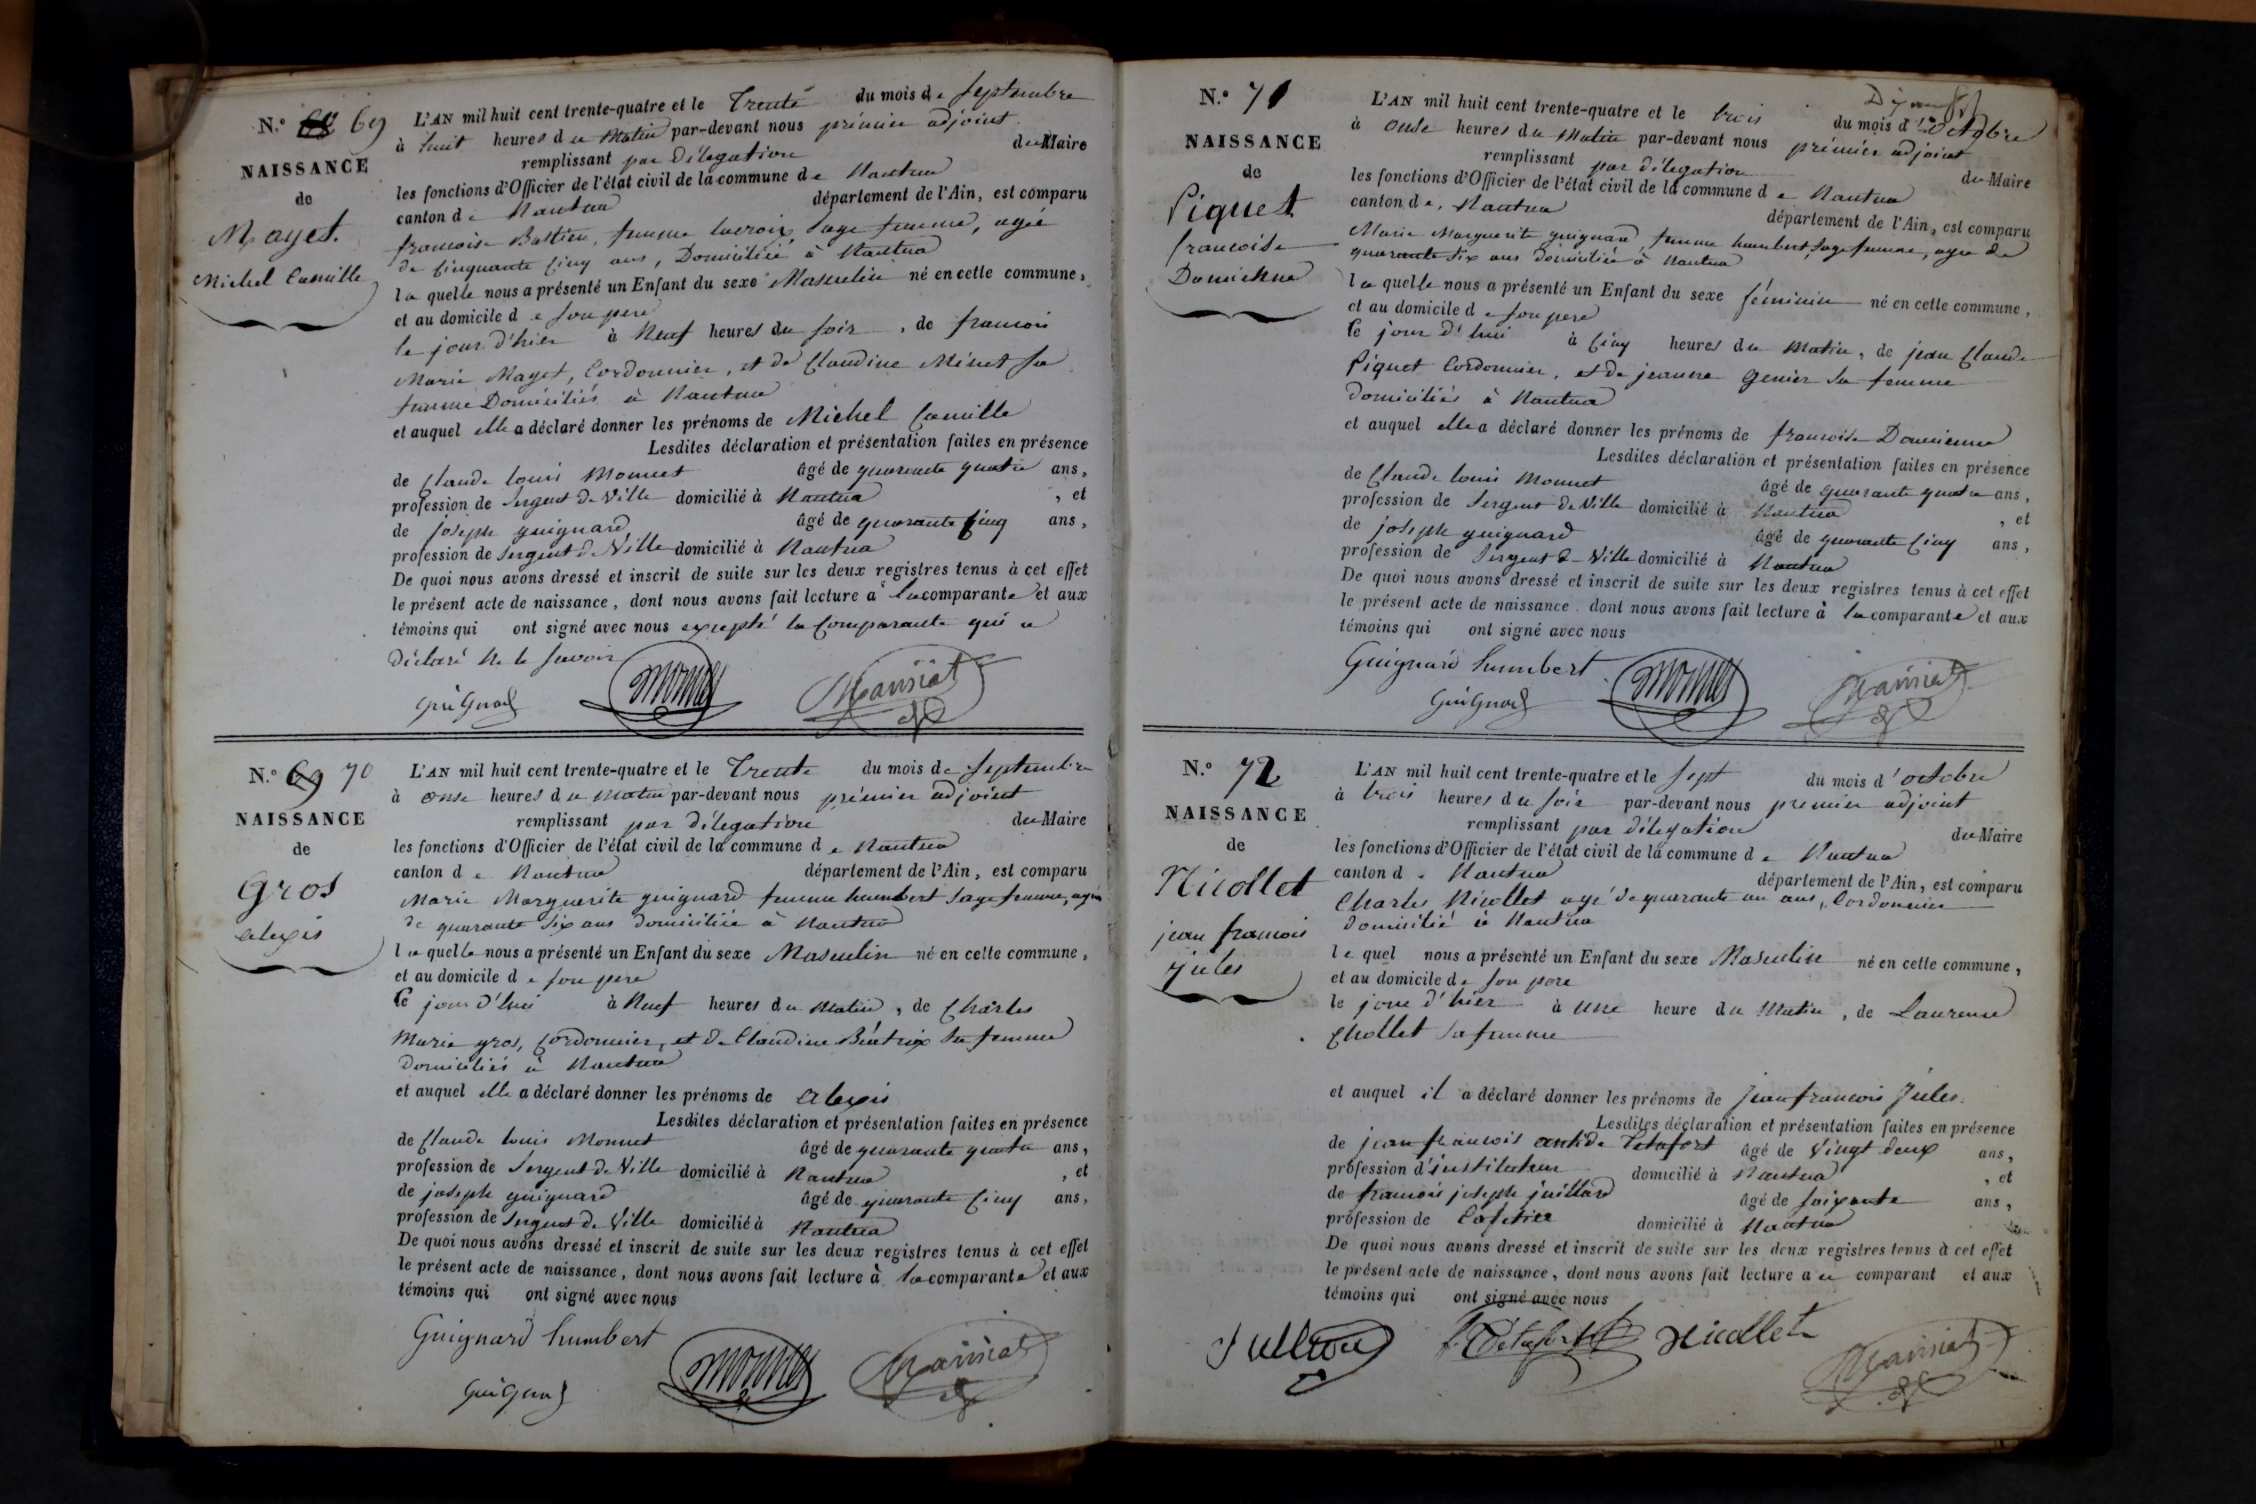 N.º 69
NAISSANCE
de
Mayet
Michel Camille
L'AN mil huit cent trente-quatre et le Trente du mois de Septembre
à huit heures du Matin par-devant nous prémier adjoint
remplissant par Délegation du Maire
les fonctions d'Officier de l'état civil de la commune de Nantua
canton de Nantua département de l'Ain, est comparu
francoise Bastien, femme lacroix Sage femme, agée
de Cinquante Cinq ans, Domiciliée à Nantua
laquelle nous a présenté un Enfant du sexe Masculin né en cette commune,
et au domicile de son pere
le jour d'hier à Neuf heures du soir, de francois
Marie Mayet, Cordonnier, et de Claudine Minet sa
femme Domiciliés à Nantua
et auquel elle a déclaré donner les prénoms de Michel Camille
Lesdites déclaration et présentation faites en présence
de Claude louis Monnet âgé de quarante quatre ans,
profession de Sergent de Ville domicilié à Nantua, et
de joseph guignard âgé de quarante Cinq ans,
profession de Sergent de Ville domicilié à Nantua
De quoi nous avons dressé et inscrit de suite sur les deux registres tenus à cet effet
le présent acte de naissance, dont nous avons fait lecture à la comparante et aux
témoins qui ont signé avec nous excepté la Comparante qui a
Déclaré Ne le savoir
GuiGnard Monnet Mansiat
N.º 69 70
NAISSANCE
de
Gros
alexis
L'AN mil huit cent trente-quatre et le Trente du mois de Septembre
à onse heures du matin par-devant nous prémier adjoint
remplissant par délegation du Maire
les fonctions d'Officier de l'état civil de la commune de Nantua
canton de Nantua département de l'Ain, est comparu
Marie Marguerite guignard femme humbert Sage femme, agée
de quarante Six ans domiciliée à Nantua
laquelle nous a présenté un Enfant du sexe Masculin né en cette commune,
et au domicile de son pere
Ce jour d'hui à Neuf heures du Matin, de Charles
Marie gros, Cordonnier, et de Claudine Béatrix Sa femme
Domiciliés à Nantua
et auquel elle a déclaré donner les prénoms de alexis
Lesdites déclaration et présentation faites en présence
de Claude louis Monnet âgé de quarante quatre ans,
profession de Sergent de Ville domicilié à Nantua, et
de joseph guignard âgé de quarante Cinq ans,
profession de Sergent de Ville domicilié à Nantua
De quoi nous avons dressé et inscrit de suite sur les deux registres tenus à cet effet
le présent acte de naissance, dont nous avons fait lecture à la comparante et aux
témoins qui ont signé avec nous
Guignard humbert
GuiGnard Monnet Mansiat
N.º 71
NAISSANCE
de
Piquet
francoise
Damienne
L'AN mil huit cent trente-quatre et le trois du mois d'octobre
à onse heures du Matin par-devant nous prémier adjoint
remplissant par délegation du Maire
les fonctions d'Officier de l'état civil de la commune de Nantua
canton de Nantua département de l'Ain, est comparu
Marie Marguerite guignard, femme humbert, sage femme, agée de
quarante Six ans domiciliée à Nantua
laquelle nous a présenté un Enfant du sexe féminin né en cette commune,
et au domicile de son pere
Ce jour d'hui à Cinq heures du Matin, de jean Claude
Piquet Cordonnier, et de jeanne Genier Sa femme
domiciliés à Nantua
et auquel elle a déclaré donner les prénoms de francoise Damienne
Lesdites déclaration et présentation faites en présence
de Claude louis Monnet âgé de quarante quatre ans,
profession de Sergent de Ville domicilié à Nantua, et
de joseph guignard âgé de quarante Cinq ans,
profession de Sergent de Ville domicilié à Nantua
De quoi nous avons dressé et inscrit de suite sur les deux registres tenus à cet effet
le présent acte de naissance, dont nous avons fait lecture à la comparante et aux
témoins qui ont signé avec nous
Guignard humbert
GuiGnard Monnet Mansiat
N.º 72
NAISSANCE
de
Nicollet
jean francois
jules
L'AN mil huit cent trente-quatre et le sept du mois d'octobre
à trois heures du soir par-devant nous premier adjoint
remplissant par délegation du Maire
les fonctions d'Officier de l'état civil de la commune de Nantua
canton de Nantua département de l'Ain, est comparu
Charles Nicollet agé de quarante un ans, Cordonnier
domicilié à Nantua
lequel nous a présenté un Enfant du sexe Masculin né en cette commune,
et au domicile de son pere
le jour d'hier à une heure du Matin, de Laurence
Chollet sa femme
et auquel il a déclaré donner les prénoms de jean francois Jules
Lesdites déclaration et présentation faites en présence
de jean francois antide Tetafort âgé de Vingt deux ans,
profession d'instituteur domicilié à Nantua, et
de francois joseph juillard âgé de soixante ans,
profession de Cafetier domicilié à Nantua
De quoi nous avons dressé et inscrit de suite sur les deux registres tenus à cet effet
le présent acte de naissance, dont nous avons fait lecture au comparant et aux
témoins qui ont signé avec nous
Tetafort Nicollet Mansiat